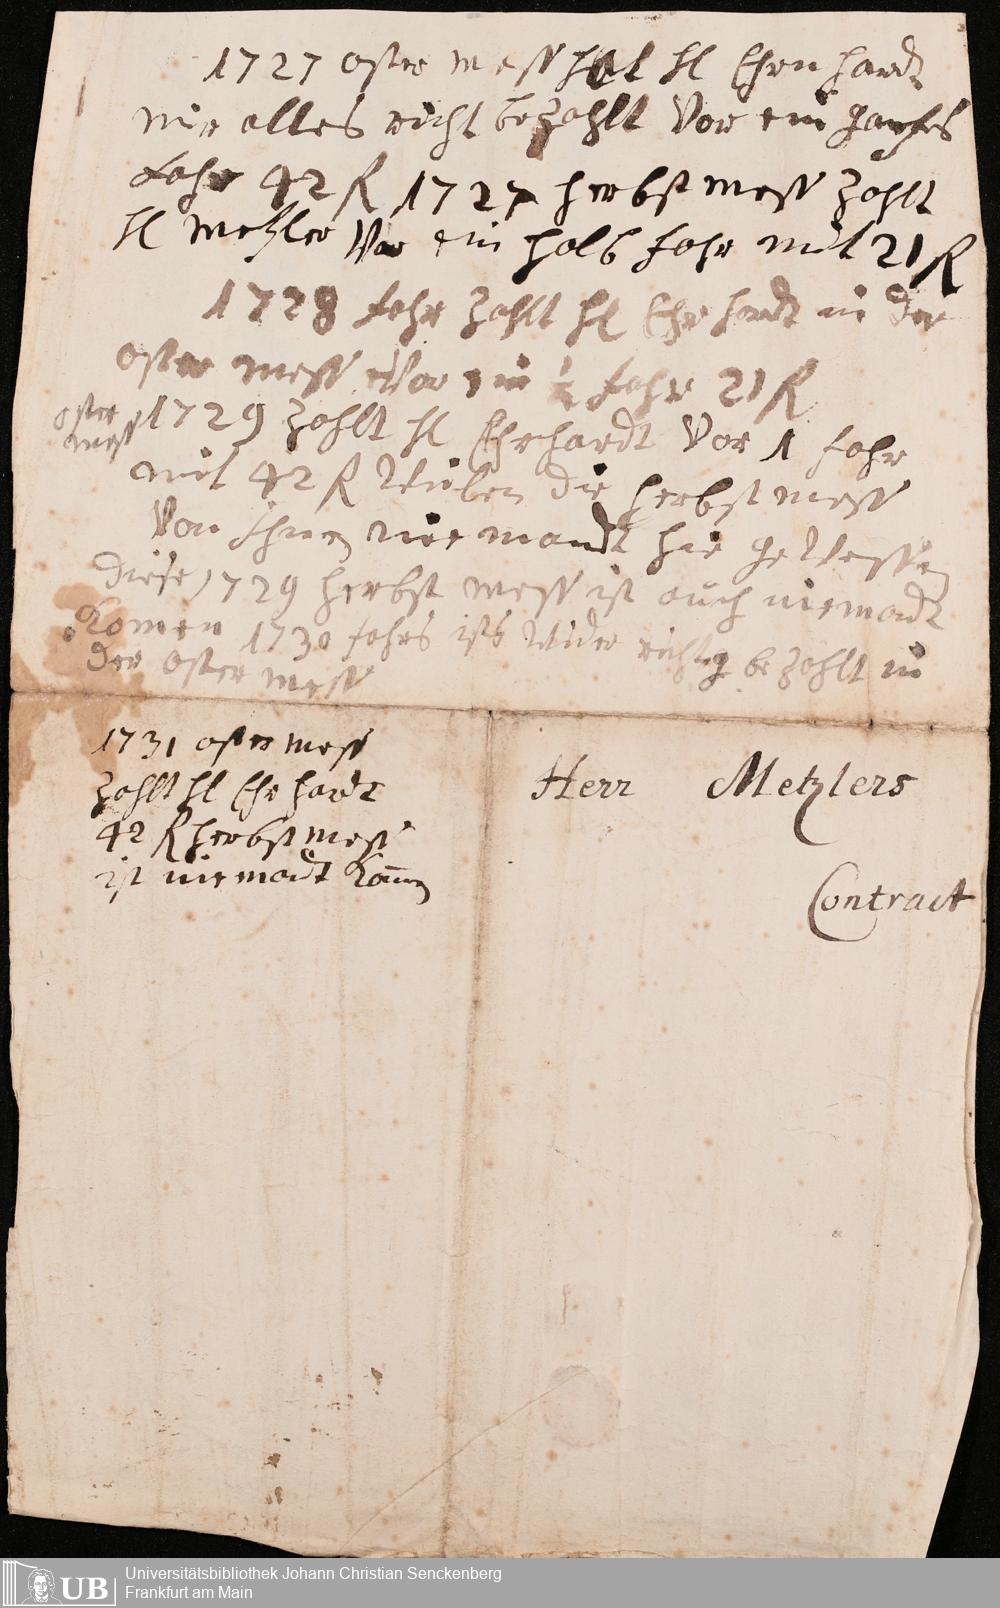 1727 oster mess hat hl Ehrnhardt
mir alles richt bezahlt Vor ein gantzes
Jahr 42 R 1727 herbst mess zahlt
hl Metzler Vor ein halb Jahr mit 21 R
1728 Jahr zahlt hl Ehrhardt in der
oster mess Vor ein ½ Jahr 21 R
oster mess 1729 zahlt hl Ehrhardt Vor 1 Jahr
mit 42 R die herbst mess
Von Ihnen niemandt hie gewessen
diese 1729 herbst mess ist auch niemadt
Komen 1730 Jahrs ists wider richtig bezahlt in
der oster mess
1731 oster mess
zahlt hl Ehrhardt
42 R herbst mess
ist niemadt Kom̄en
Herr Metzlers
Contract
UB Universitätsbibliothek Johann Christian Senckenberg
Frankfurt am Main